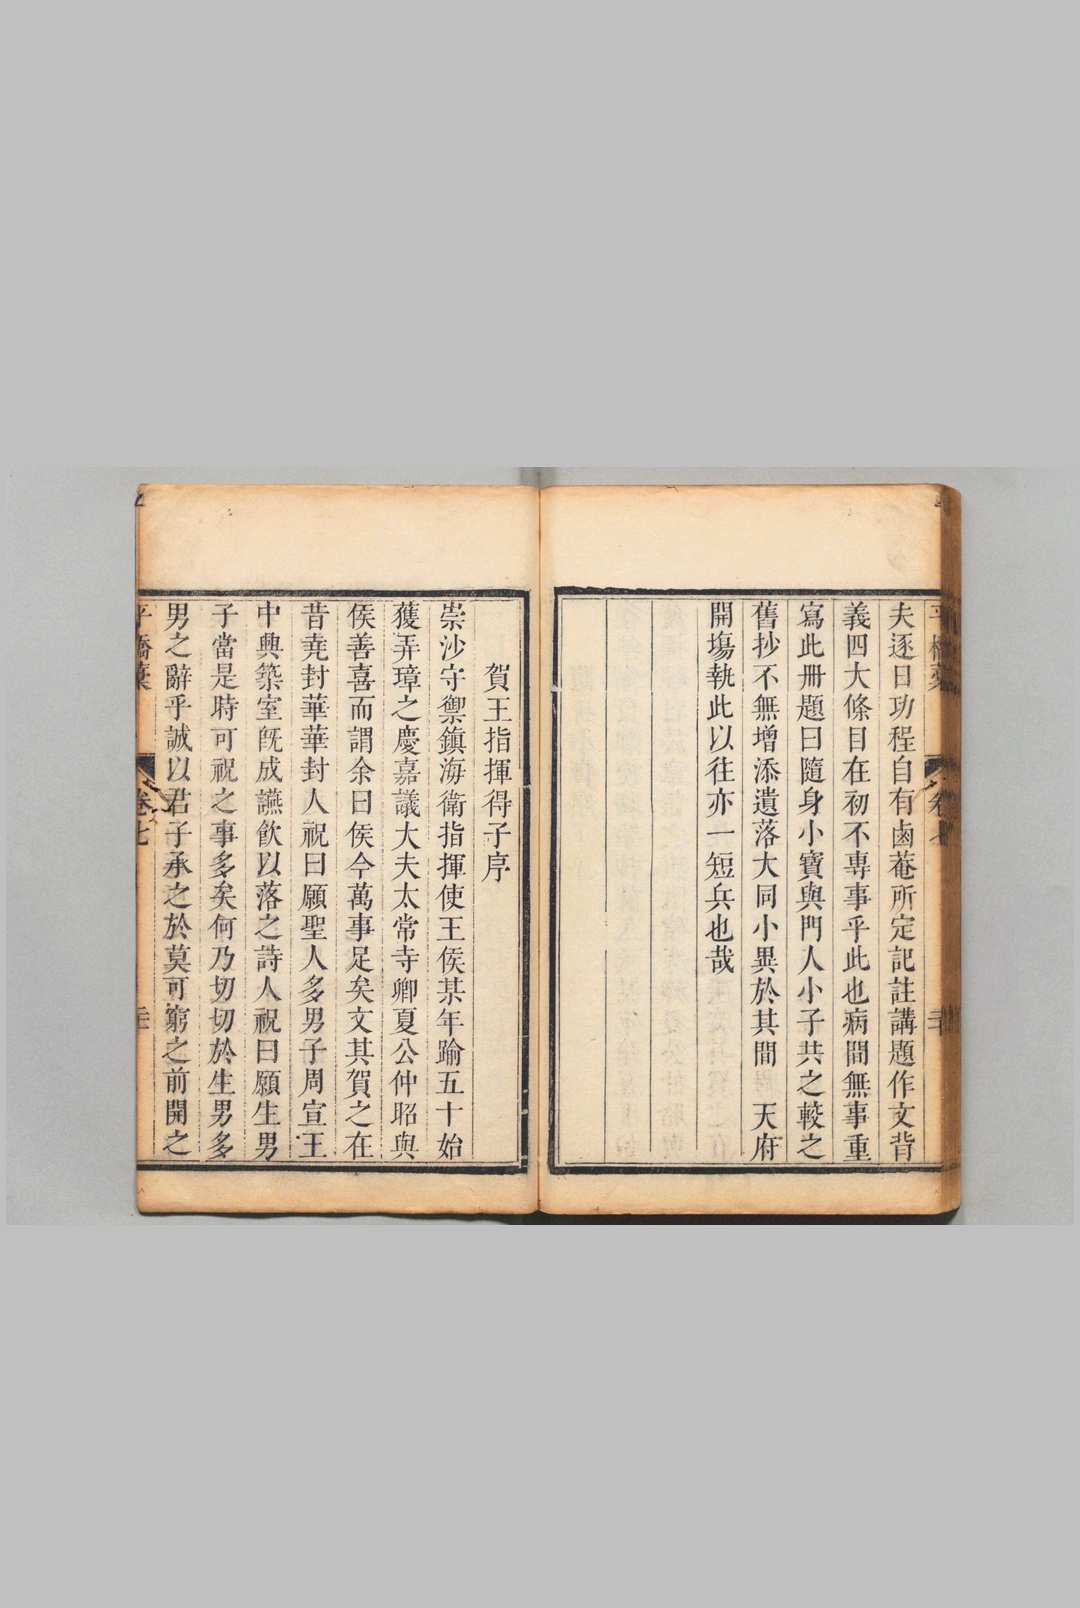 夫逐日功程自有鹵菴所定記註講題作文背
義四大條目在初不専事乎此也病間無事重
寫此冊題曰隨身小寶與門人小子共之較之
舊抄不無增添遺落大同小異於其間　天府
開塲執此以往亦一短兵也哉
賀王指揮得子序
崇沙守禦鎮海衛指揮使王侯某年踰五十始
獲弄璋之慶嘉議大夫太常寺卿夏公仲昭與
侯善喜而謂余曰侯今萬事足矣文其賀之在
昔堯封華華封人祝曰願聖人多男子周宣王
中興築室旣成讌飲以落之詩人祝曰願生男
子當是時可祝之事多矣何乃切切於生男多
男之辭乎誠以君子承之於莫可窮之前開之
平橋藁
卷七